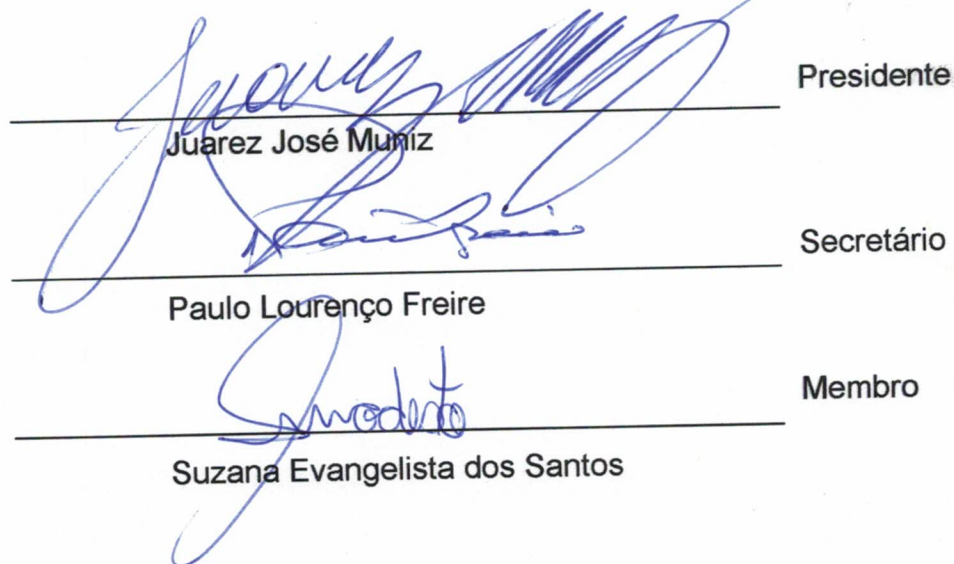 Juarez Presidente
Juarez José Muniz
Secretário
Paulo Lourenço Freire
Membro
Suzana Evangelista dos Santos